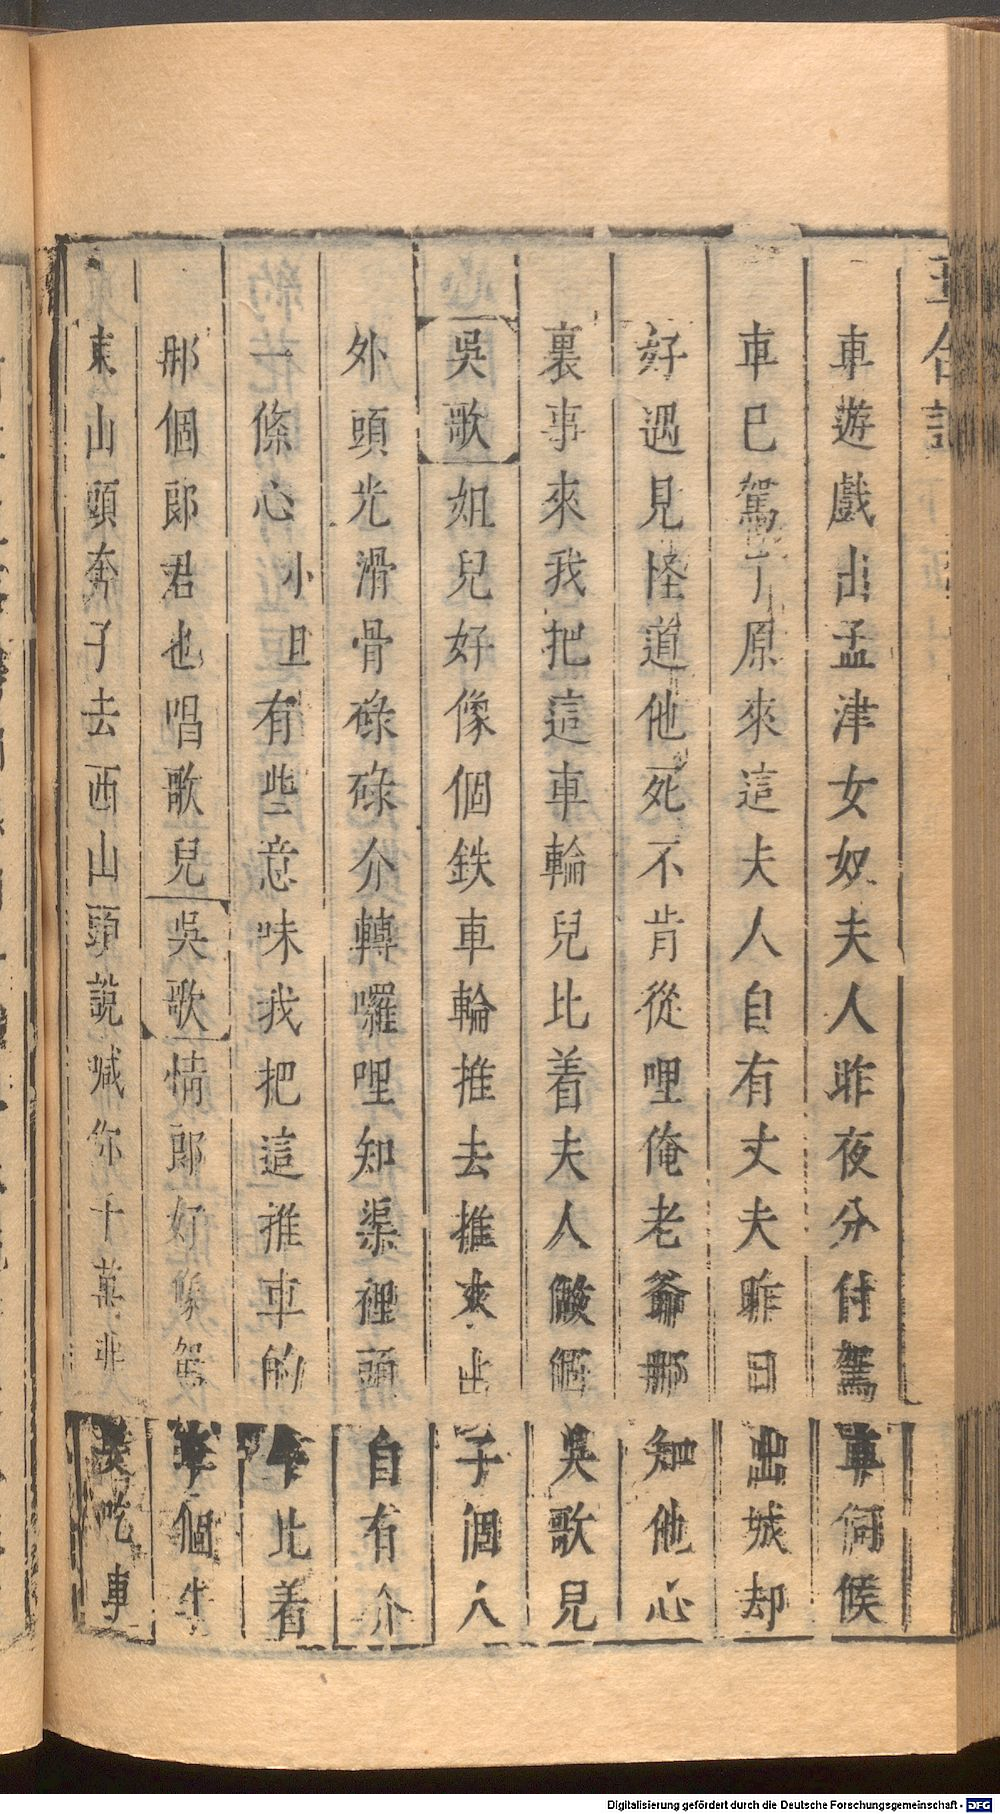 車遊戲出孟津女奴夫人昨夜分付駕車伺候
車已駕了原來這夫人自有丈夫昨日出城却
好遇見怪道他死不肯從哩俺老爺那知他心
裏事來我把這車輪兒比着夫人做個吳歌兒
吳歌姐兒好像個鉄車輪推去推來出子個人
外頭光滑骨碌碌介轉囉哩知渠裡頭自有介
一條心小旦有些意味我把這推車的牛比着
那個郎君也唱歌兒吳歌情郎好像駕車個牛
東山頭奔子去西山頭說喊你千萬非吃車
Digitalisierung gefördert durch die Deutsche Forschungsgemeinschaft - DFG